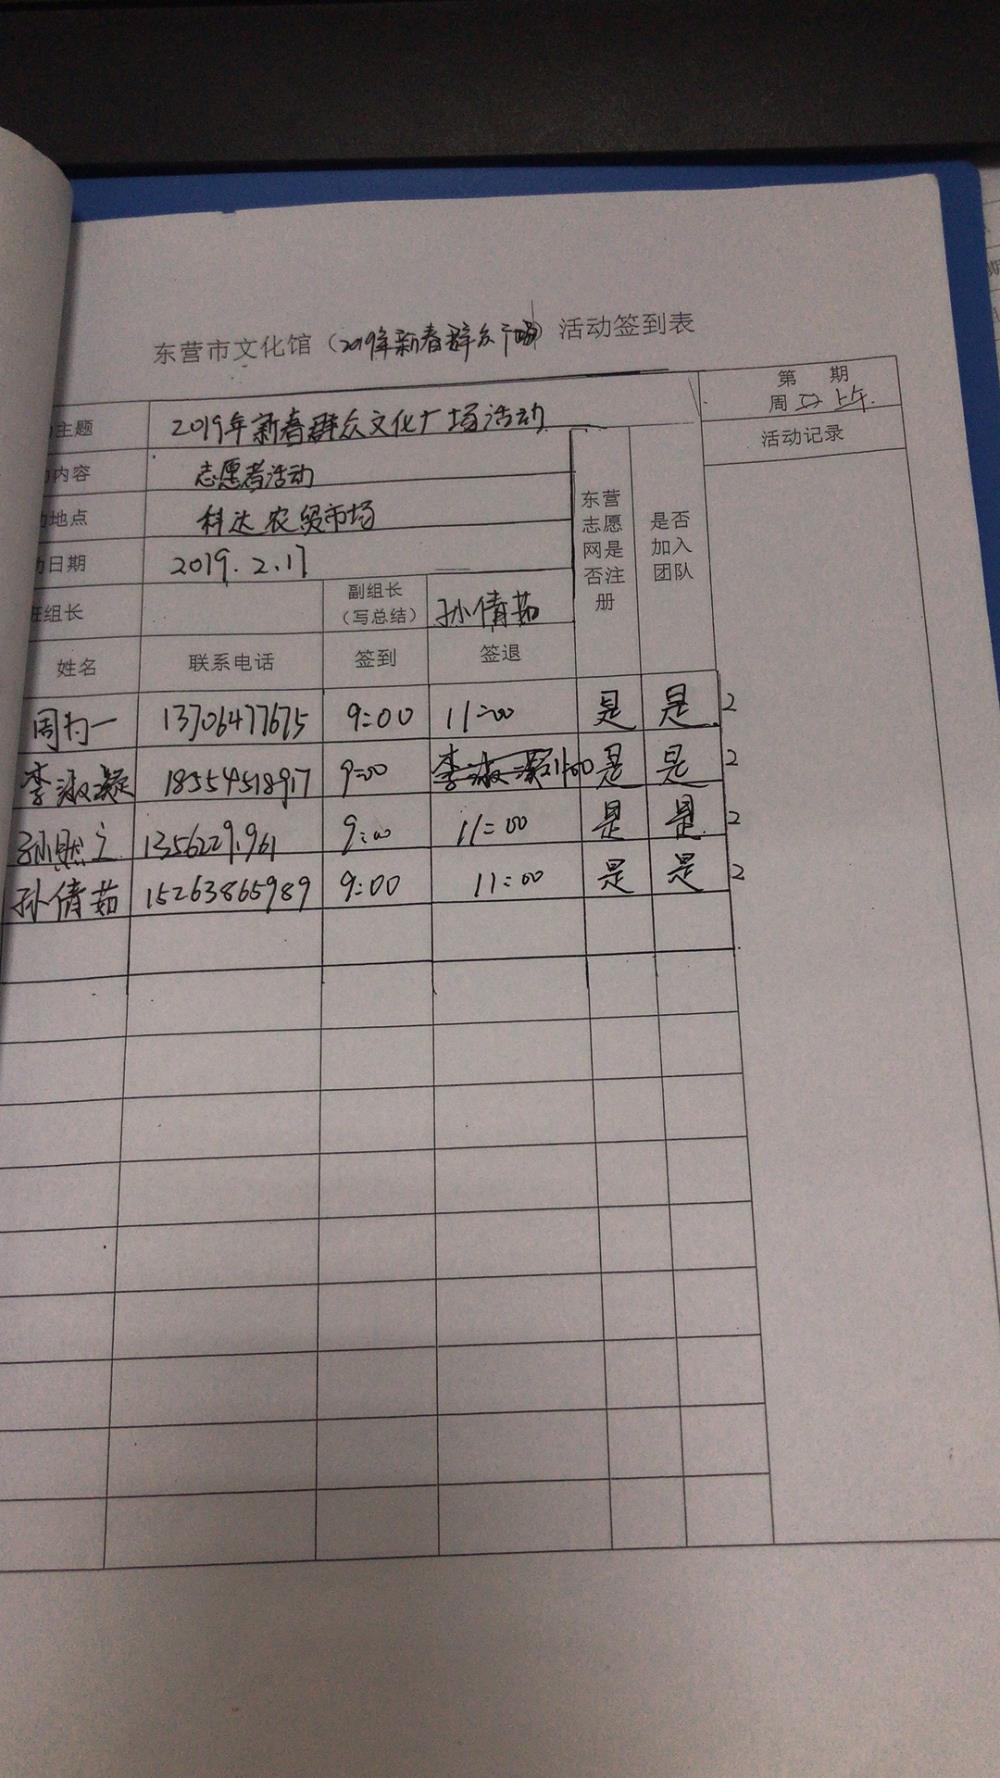 东营市文化馆（2019年新春群众广场）活动签到表
第 期
周 上午
主题 2019年新春群众文化广场活动
活动记录
内容 志愿者活动
地点 科达农贸市场
日期 2019.2.17
东营志愿网是否注册
是否加入团队
组长 副组长（写总结） 孙倩茹
姓名 联系电话 签到 签退
周为一 13706477675 9:00 11:00 是 是 2
李淑凝 18554518917 9:00 11:00 是 是 2
9:00 11:00 是 是 2
孙倩茹 15263865989 9:00 11:00 是 是 2